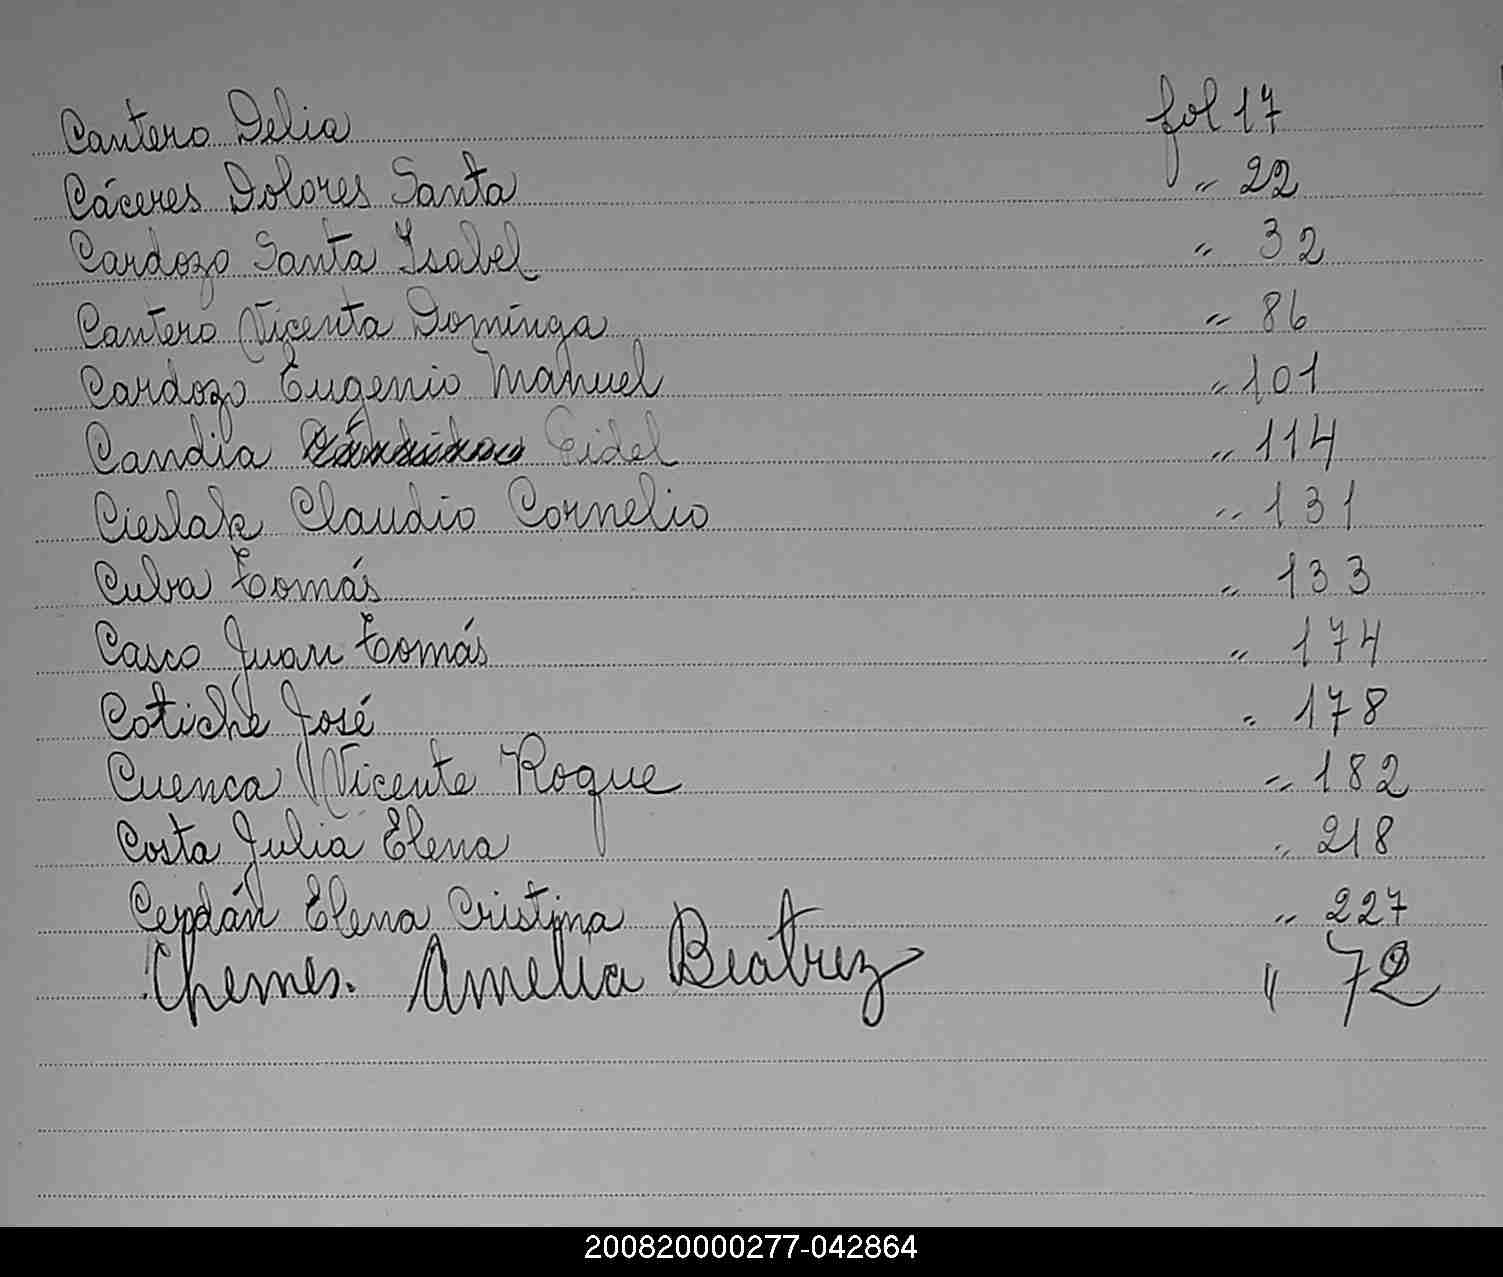 Cantero Delia fol 17
Cáceres Dolores Santa " 22
Cardozo Santa Ysabel " 32
Cantero Vicenta Dominga " 86
Cardozo Eugenio Manuel " 101
Candia Fidel " 114
Cieslak Claudio Cornelio " 131
Cuba Tomás " 133
Casco Juan Tomás " 174
Cotiche José " 178
Cuenca Vicente Roque " 182
Costa Julia Elena " 218
Cerdán Elena Cristina " 227
Chemes. Amelia Beatrez " 72
200820000277-042864